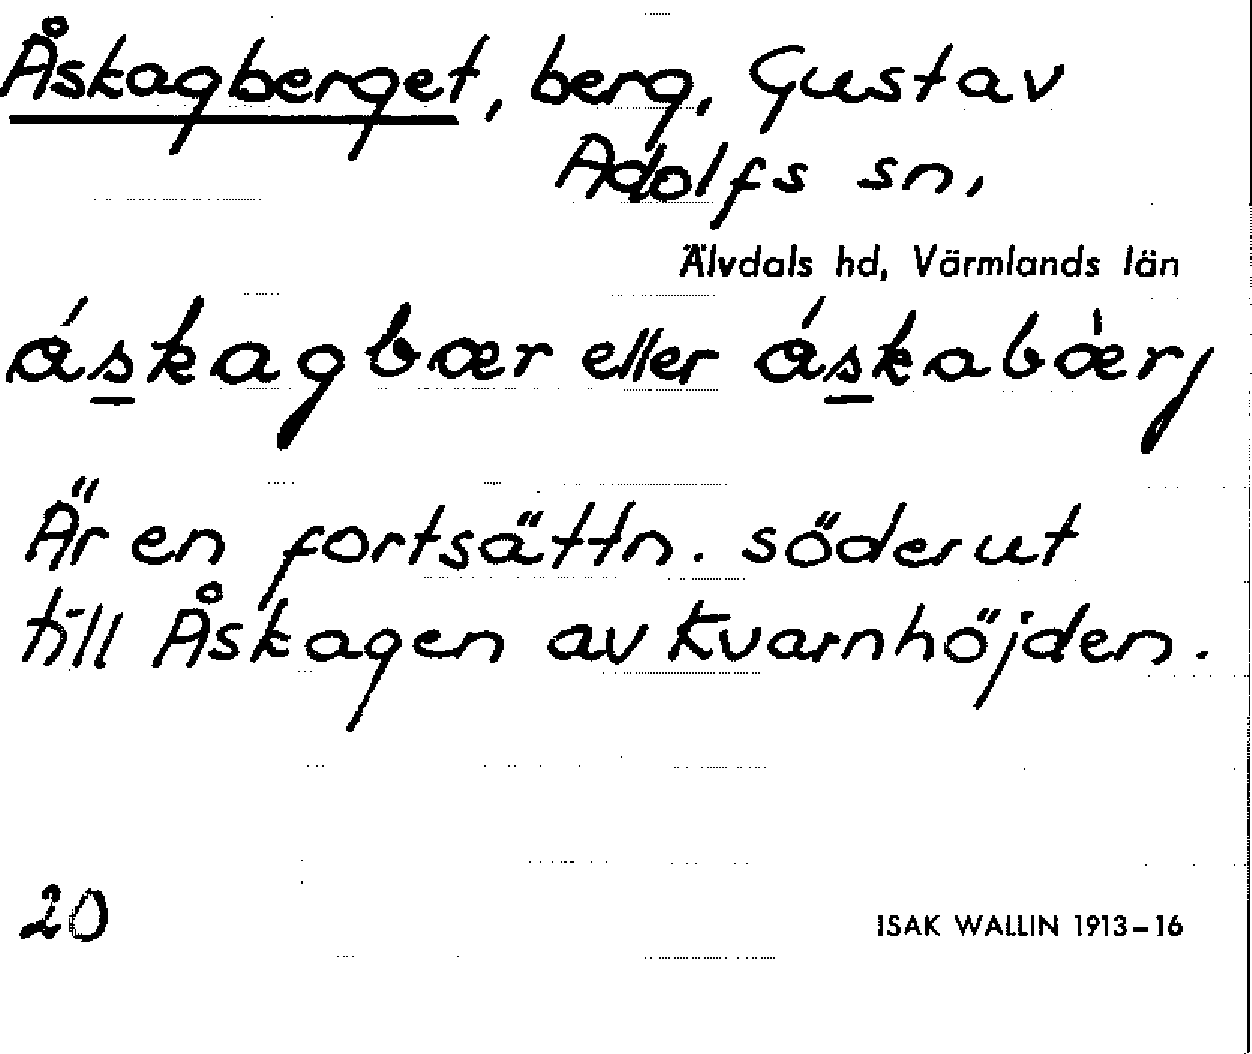 Åskagberget, berg, Gustav
Adolfs sn,
Älvdals hd, Värmlands län
áskagbær eller áskabæ̀rj
Är en fortsättn. söderut
till Åskagen av Kvarnhöjden.
20
ISAK WALLIN 1913–16